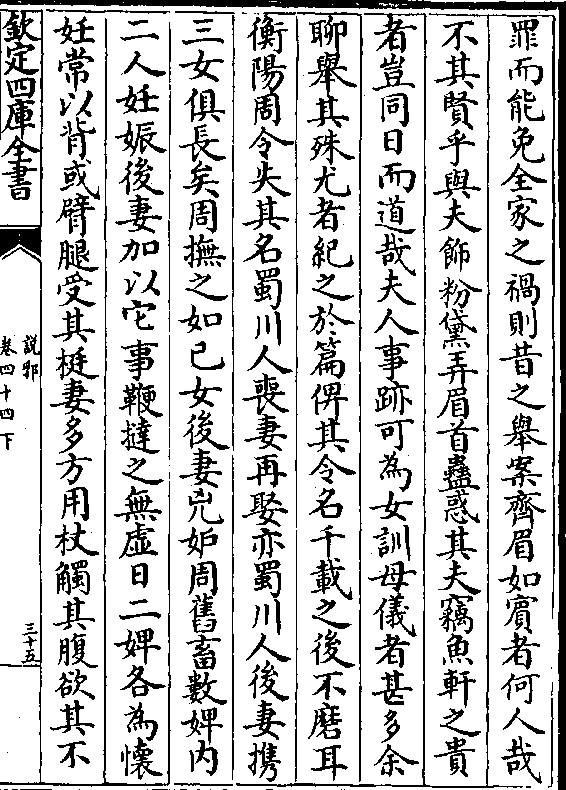 罪而能免全家之禍則昔之舉案齊眉如賔者何人哉
不其賢乎與夫飾粉黛弄眉首蠱惑其夫竊魚軒之貴
者豈同日而道哉夫人事跡可為女訓母儀者甚多余
聊舉其殊尤者紀之於篇俾其令名千載之後不磨耳
衡陽周令失其名蜀川人喪妻再娶亦蜀川人後妻携
三女俱長矣周撫之如已女後妻兇妒周舊畜數婢内
二人妊娠後妻加以它事鞭撻之無虚日二婢各為懐
妊常以背或臂腿受其梃妻多方用杖觸其腹欲其不
欽定四庫全書
説郛
卷四十四下
三十五